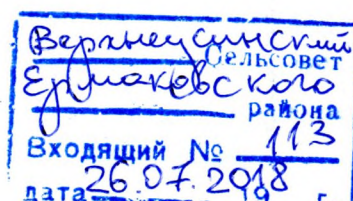 Верхнеусинский
сельсовет
Ермаковского
района
Входящий № 113
дата 26.07.2018 19 г.